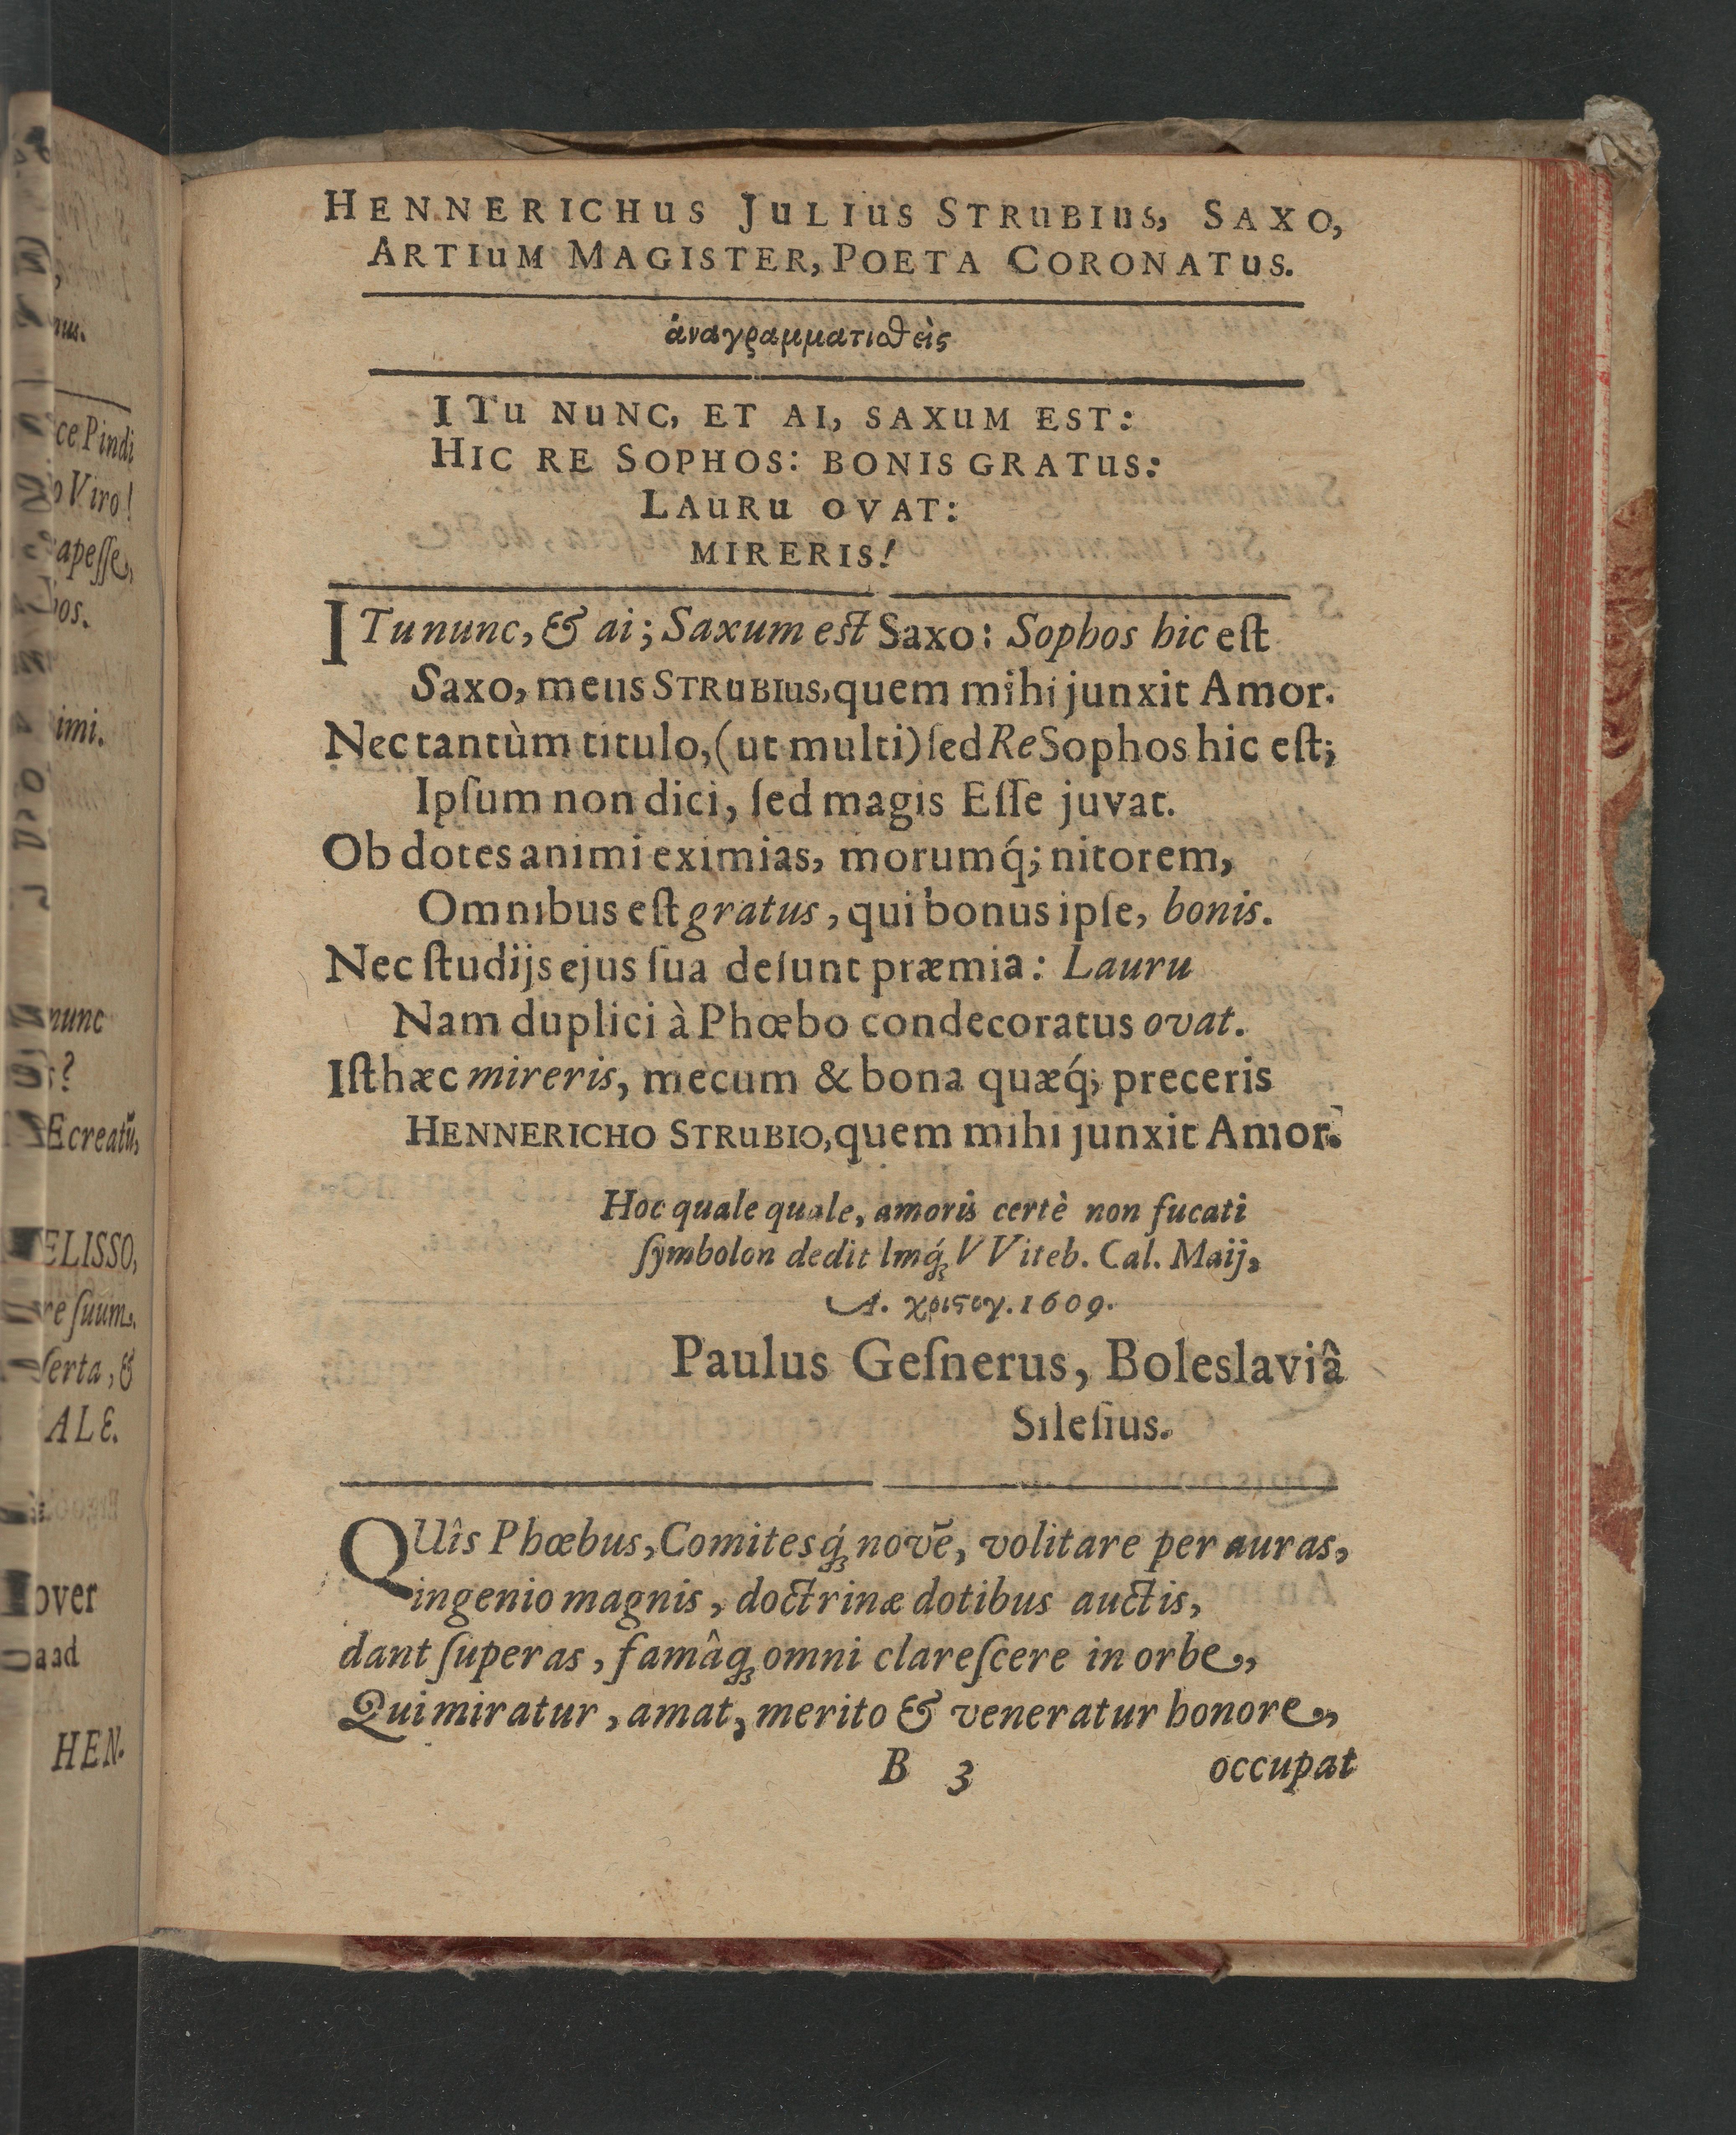 HENNERICHUS JULIUS STRUBIUS, SAXO,
ARTIUM MAGISTER, POETA CORONATUS.
ἀναγραμματιϑεὶς
I TU NUNC, ET AI, SAXUM EST:
HIC RE SOPHOS: BONIS GRATUS:
LAURU OVAT:
MIRERIS!
I Tu nunc, & ai; Saxum est Saxo: Sophos hic eſt
Saxo, meus STRUBIUS, quem mihi junxit Amor.
Nec tantùm titulo, (ut multi) ſed Re Sophos hic eſt;
Ipſum non dici, ſed magis Eſſe juvat.
Ob dotes animi eximias, morumq́; nitorem,
Omnibus eſt gratus, qui bonus ipſe, bonis.
Nec ſtudijs ejus ſua deſunt præmia: Lauru
Nam duplici à Phœbo condecoratus ovat.
Iſthæc mireris, mecum & bona quæq́; preceris
HENNERICHO STRUBIO, quem mihi junxit Amor.
Hoc quale quale, amoris certè non fucati
ſymbolon dedit lmq́; VViteb. Cal. Maij,
A. χριστου. 1609.
Paulus Geſnerus, Boleslaviâ
Sileſius.
QUîs Phœbus, Comitesq́; novē, volitare per auras,
ingenio magnis, doctrinæ dotibus auctis,
dant ſuperas, famâq; omni clareſcere in orbe,
Qui miratur, amat, merito & veneratur honore,
B 3 occupat
ce Pindi
Viro!
apeſſe,
nunc
creatū,
ELISSO,
ſuum.
ſerta, &
ALE.
over
aad
HEN.